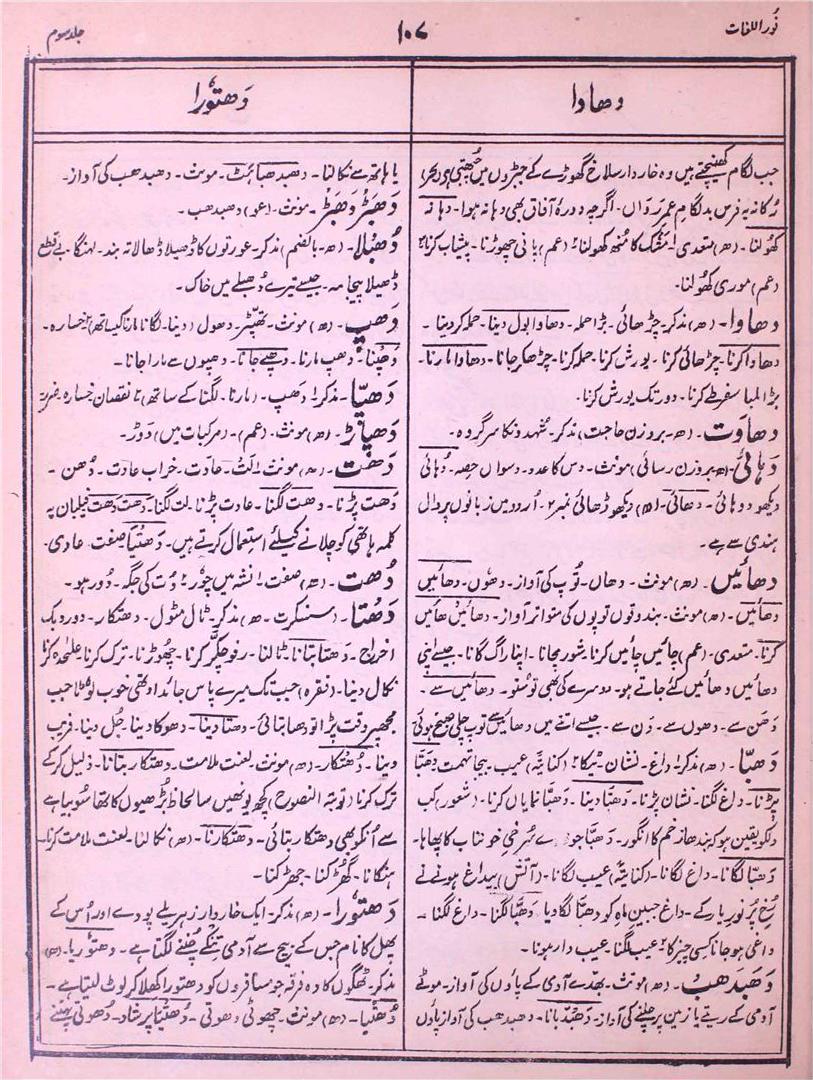 نُور اللغات
۱۰۷
جلد سوم
دھاوا
دَھتوٗرا
جب لگام کھینچتے ہیں وہ خاردار سلاخ گھوڑے کے جبڑوں میں چُبھتی ہی
رُکا نہ یہ فرس بدلگامِ عمرِ رواں۔ اگرچہ دورۂ آفاق بھی دہانہ ہوا۔ دہانہ
کھُولنا۔ (ھ) متعدی ۱ مَشک کا مُنھ کھولنا ۲ (عم) پانی چھوڑنا۔ پیشاب کرنا ۳
(عم) موری کھولنا۔
دھاوا۔ (ھ) مذکر۔ چڑھائی۔ بڑا حملہ۔ دھاوا بول دینا۔ حملہ کر دینا۔
دھاوا کرنا۔ چڑھائی کرنا۔ یورش کرنا۔ حملہ کرنا۔ چڑھکر جانا۔ دھاوا مارنا۔
بڑا لمبا سفر طے کرنا۔ دور تک یورش کرنا۔
دھاوَت۔ (ھ۔ بروزن حاجت) مذکر۔ شہد نکا سرگروہ۔
دَہائی۔ (ھ بروزن رسائی) مونث۔ دس کا عدد۔ دسواں حصہ۔ دُہائی
دیکھو دوہائی۔ دھائی۔ (ھ) دیکھو ڈھائی نمبر ۲۔ اُردو میں زبانوں پر دال
ہندی سے ہے۔
دھائیں۔ (ھ) مونث۔ دھاں۔ توپ کی آواز۔ دھوں۔ دھائیں
دھائیں۔ (ھ) مونث۔ بندوقوں توپوں کی متواتر آواز۔ دھائیں دھائیں
کرنا۔ متعدی۔ (عم) چائیں چائیں کرنا۔ شور مچانا۔ اپنا راگ گانا۔ جیسے اپنی
دھائیں دھائیں کئے جاتے ہو۔ دوسرے کی بھی تو سُنو۔ دھائیں سے۔
دَھن سے۔ دھوں سے۔ دَن سے۔ جیسے اتنے میں دھائیں سے توپ چلی صبح ہوئی
دَھبّا۔ (ھ) مذکر ۱ داغ۔ نشان۔ ٹیکا ۲ (کنایۃً) عیب۔ بیجا تہمت دَھبّا
پڑنا۔ داغ لگنا۔ نشان پڑنا۔ دَھبّا دینا۔ دَھبّا نمایاں کرنا۔ (شعور) کب
دلکو یقین ہو کہ بندھا زخم کا انگور۔ دَھبّا جو دے سُرخیِ خوننابِ کا پھاہا۔
دَھبّا لگانا۔ داغ لگانا۔ (کنایۃً) عیب لگانا۔ (آتش) پیداغ ہونے نے
رُخِ پُر نورِ یار کے۔ داغِ جبینِ ماہ کو دھبّا لگا دیا۔ دَھبّا لگنا۔ داغ لگنا۔
داغی ہو جانا کسی چیز کا ۲ عیب لگنا۔ عیب دار ہونا۔
دَھبدَھب۔ (ھ) مونث۔ بھدّے آدمی کے پاؤں کی آواز۔ موٹے
آدمی کے ریتے یا زمین پر چلنے کی آواز۔ دَھبدَبانا۔ دھبدھب کی آواز پاؤں
یا ہاتھ سے نکالنا۔ دھبدھباہٹ۔ مونث۔ دھبدھب کی آواز۔
دَھبَڑ دَھبَڑ۔ مونث۔ (عو) دھبدھب۔
دُھبلا۔ (ھ۔ بالضم) مذکر۔ عورتوں کا ڈھیلا ڈھالا تہ بند۔ لہنگا۔ بے قطع
ڈھیلا پیجامہ۔ جیسے تیرے دُھبلے میں خاک۔
دَھپ۔ (ھ) مونث۔ تھپّڑ۔ دھول۔ (دینا۔ لگانا۔ مارنا کیساتھ) ۲ خسارہ۔
دَھپنا۔ دھپ مارنا۔ دھپے جانا۔ دھپوں سے مارا جانا۔
دَھپّا۔ مذکر ۱ دَھپ۔ (مارنا۔ لگنا کے ساتھ) ۲ نقصان خسارہ۔
دَھپاڑ۔ (ھ) مونث۔ (عم)۔ (مرکبات میں) دَوڑ۔
دَھَت۔ (ھ) مونث۔ لَت۔ عادت۔ خراب عادت۔ دُھن۔
دَھت پڑنا۔ دھت لگنا۔ عادت پڑنا۔ لت لگنا۔ دھت دھت فیلبان یہ
کلمہ ہاتھی کو چلانے کیلئے استعمال کرتے ہیں۔ دَھتیا۔ صفت۔ عادی۔
دُھت۔ (ھ) صفت ۱ نشہ میں چوٗر ۲ دُت کی جگہ۔ دُور ہو۔
دَھتا۔ (سنسکرت۔ ھ) مذکر۔ ٹال مٹول۔ دھتکار۔ دور دبک
اخراج۔ دَھتا بتانا۔ ٹالنا۔ رفو چکّر کرنا۔ چھوڑنا۔ ترک کرنا۔ علٰحدہ کرنا
نکال دینا۔ (فقرہ) جب تک میرے پاس جائداد تھی خوب لوٹا جب
مجھپر وقت پڑا تو دھتا بتائی۔ دھتا دینا۔ دھوکا دینا۔ جُل دینا۔ فریب
دینا۔ دُھتکار۔ (ھ) مونث۔ لعنت ملامت۔ دھتکار بتانا۔ ذلیل کر کے
ترک کرنا (توبۃ النصوح) کچھ یونھیں سا لحاظ بُڑھیوں کا تھا سو بیاہے
سے اُنکو بھی دھتکار بتائی۔ دھتکارنا۔ (ھ) نکالنا۔ لعنت ملامت کرنا۔
ہنکانا۔ گھُڑکنا۔ جھڑکنا۔
دَھتوٗرا۔ (ھ) مذکر۔ ایک خاردار زہریلے پودے اور اُس کے
پھل کا نام جس کے بیج سے آدمی تنکے چُننے لگتا ہے۔ دھتوٗریا۔ (ھ)
مذکر۔ ٹھگوں کا وہ فرقہ جو مسافروں کو دھتورا کھلا کر لوٹ لیتا ہے۔
دُھتیا۔ (ھ) مونث۔ چھوٹی دھوتی۔ دُھتیا پرشاد۔ دُھوتی پہننے